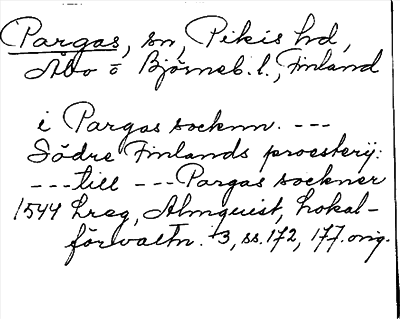 Pargas, sn, Pikis hd,
Åbo o Björneb. l., Finland
i Pargas socknn. ---
Södre Finlands prosterij:
--- till --- Pargas sockner
1544 hreg, Almquist, Lokal-
förvaltn. 3, ss. 172, 177. orig.